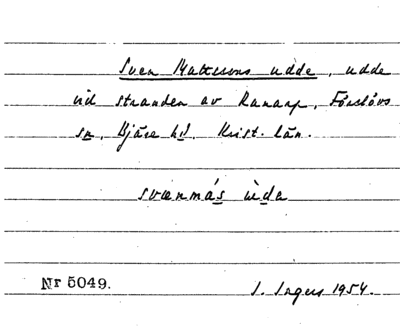 Sven Matssons udde, udde
vid stranden av Ranarp, Förslövs
sn, Bjäre hd. Krist. län.
svænmás ùda
Nr 5049.
I. Ingers 1954.